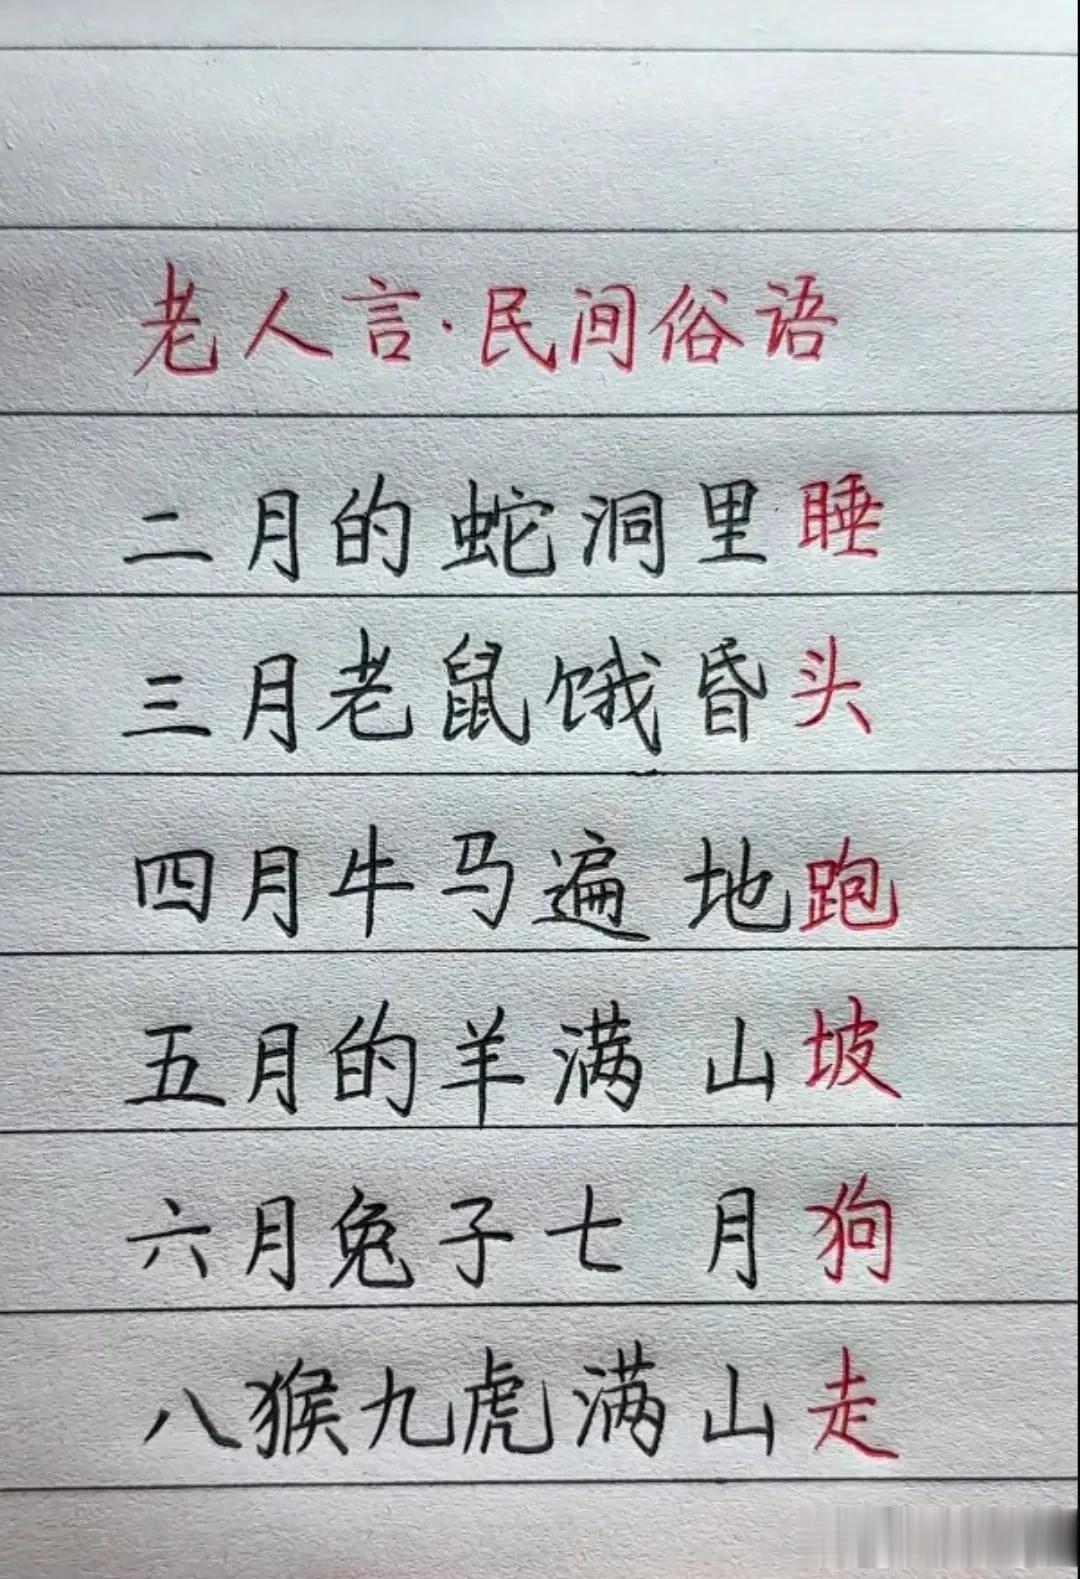 老人言·民间俗语
二月的蛇洞里睡
三月老鼠饿昏头
四月牛马遍地跑
五月的羊满山坡
六月兔子七月狗
八猴九虎满山走